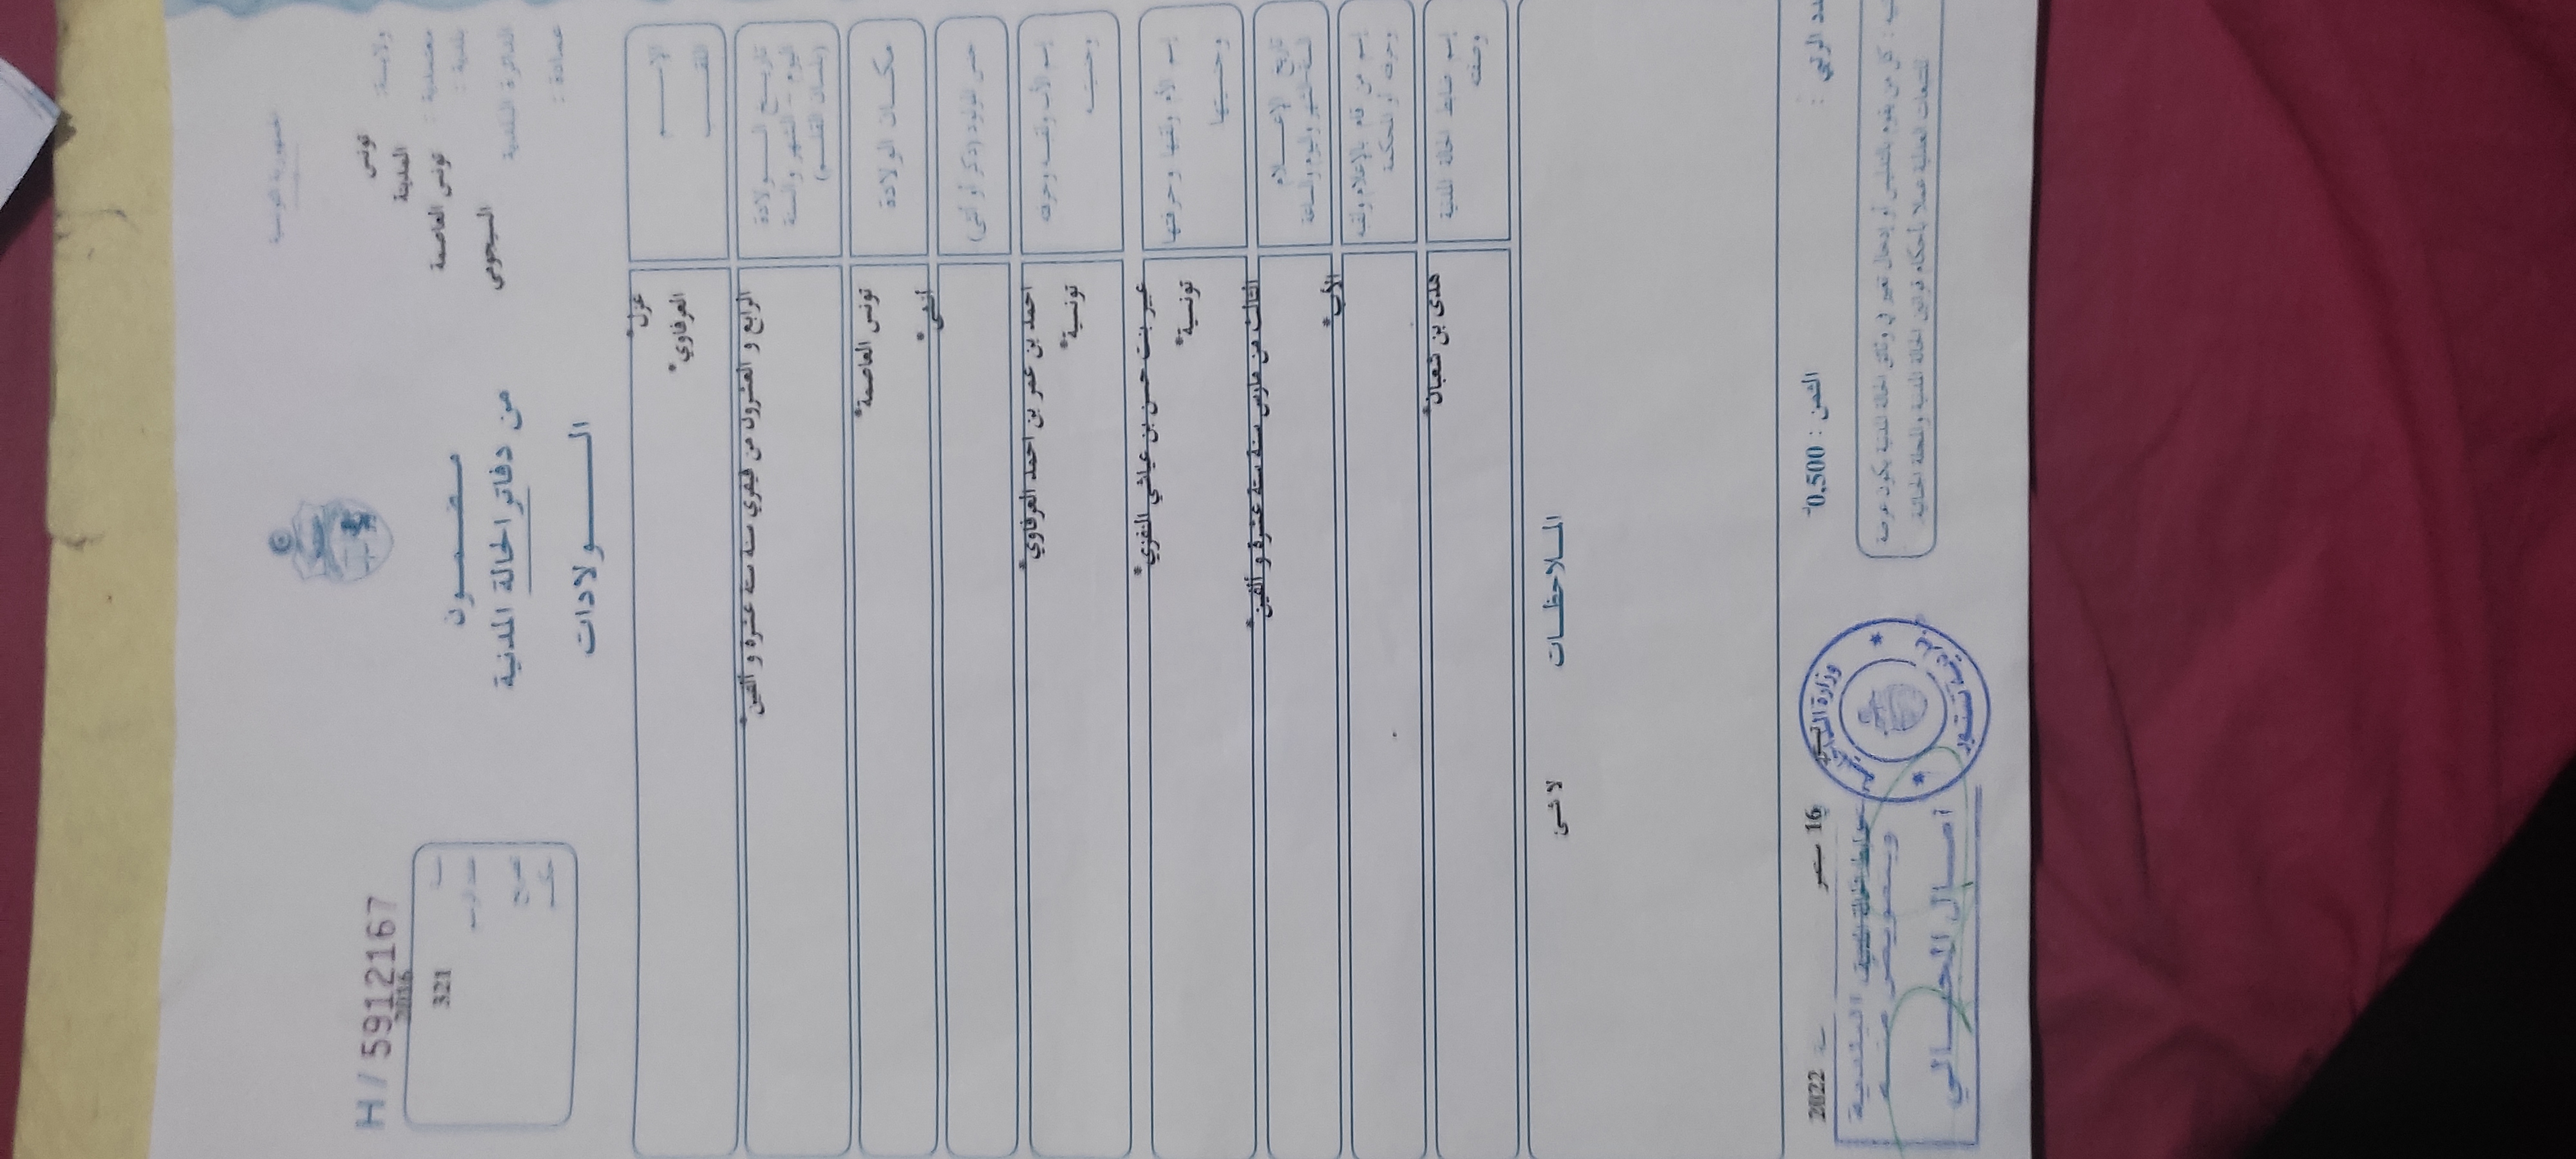 الجمهورية التونسية
ولاية: تونس
معتمدية: المدينة
بلدية: تونس العاصمة
الدائرة البلدية السيجومي
عمادة:
H / 5912167
سنة 2016
321
مضمون
من دفاتر الحالة المدنية
الولادات
الاسم
اللقب
*العرفاوي
تاريخ الولادة
اليوم - الشهر والسنة
(بلسان القلم)
الرابع و العشرون من فيفري سنة ستة عشرة و ألفين*
مكان الولادة
تونس العاصمة*
جنس المولود (ذكر أو أنثى)
أنثى*
إسم الأب ولقبه وحرفته
وجنسيته
احمد بن عمر بن احمد العرفاوي*
تونسية*
إسم الأم ولقبها وحرفتها
وجنسيتها
عبير بنت حسن بن عياشي النفزي*
تونسية*
تاريخ الإعلام
السنة والشهر واليوم والساعة
الثالث من مارس سنة ستة عشرة و ألفين*
إسم من قام بالإعلام ولقبه
وحرفته أو المحكمة
الأب*
إسم ضابط الحالة المدنية
وصفته
هدى بن شعبان*
الملاحظات
لا شئ
الثمن : 0,500
16
2022
كل من يقوم بالتدليس أو إدخال تغيير في وثائق الحالة المدنية يكون عرضة
للتتبعات العدلية عملا بأحكام قوانين الحالة المدنية والمجلة الجنائية.